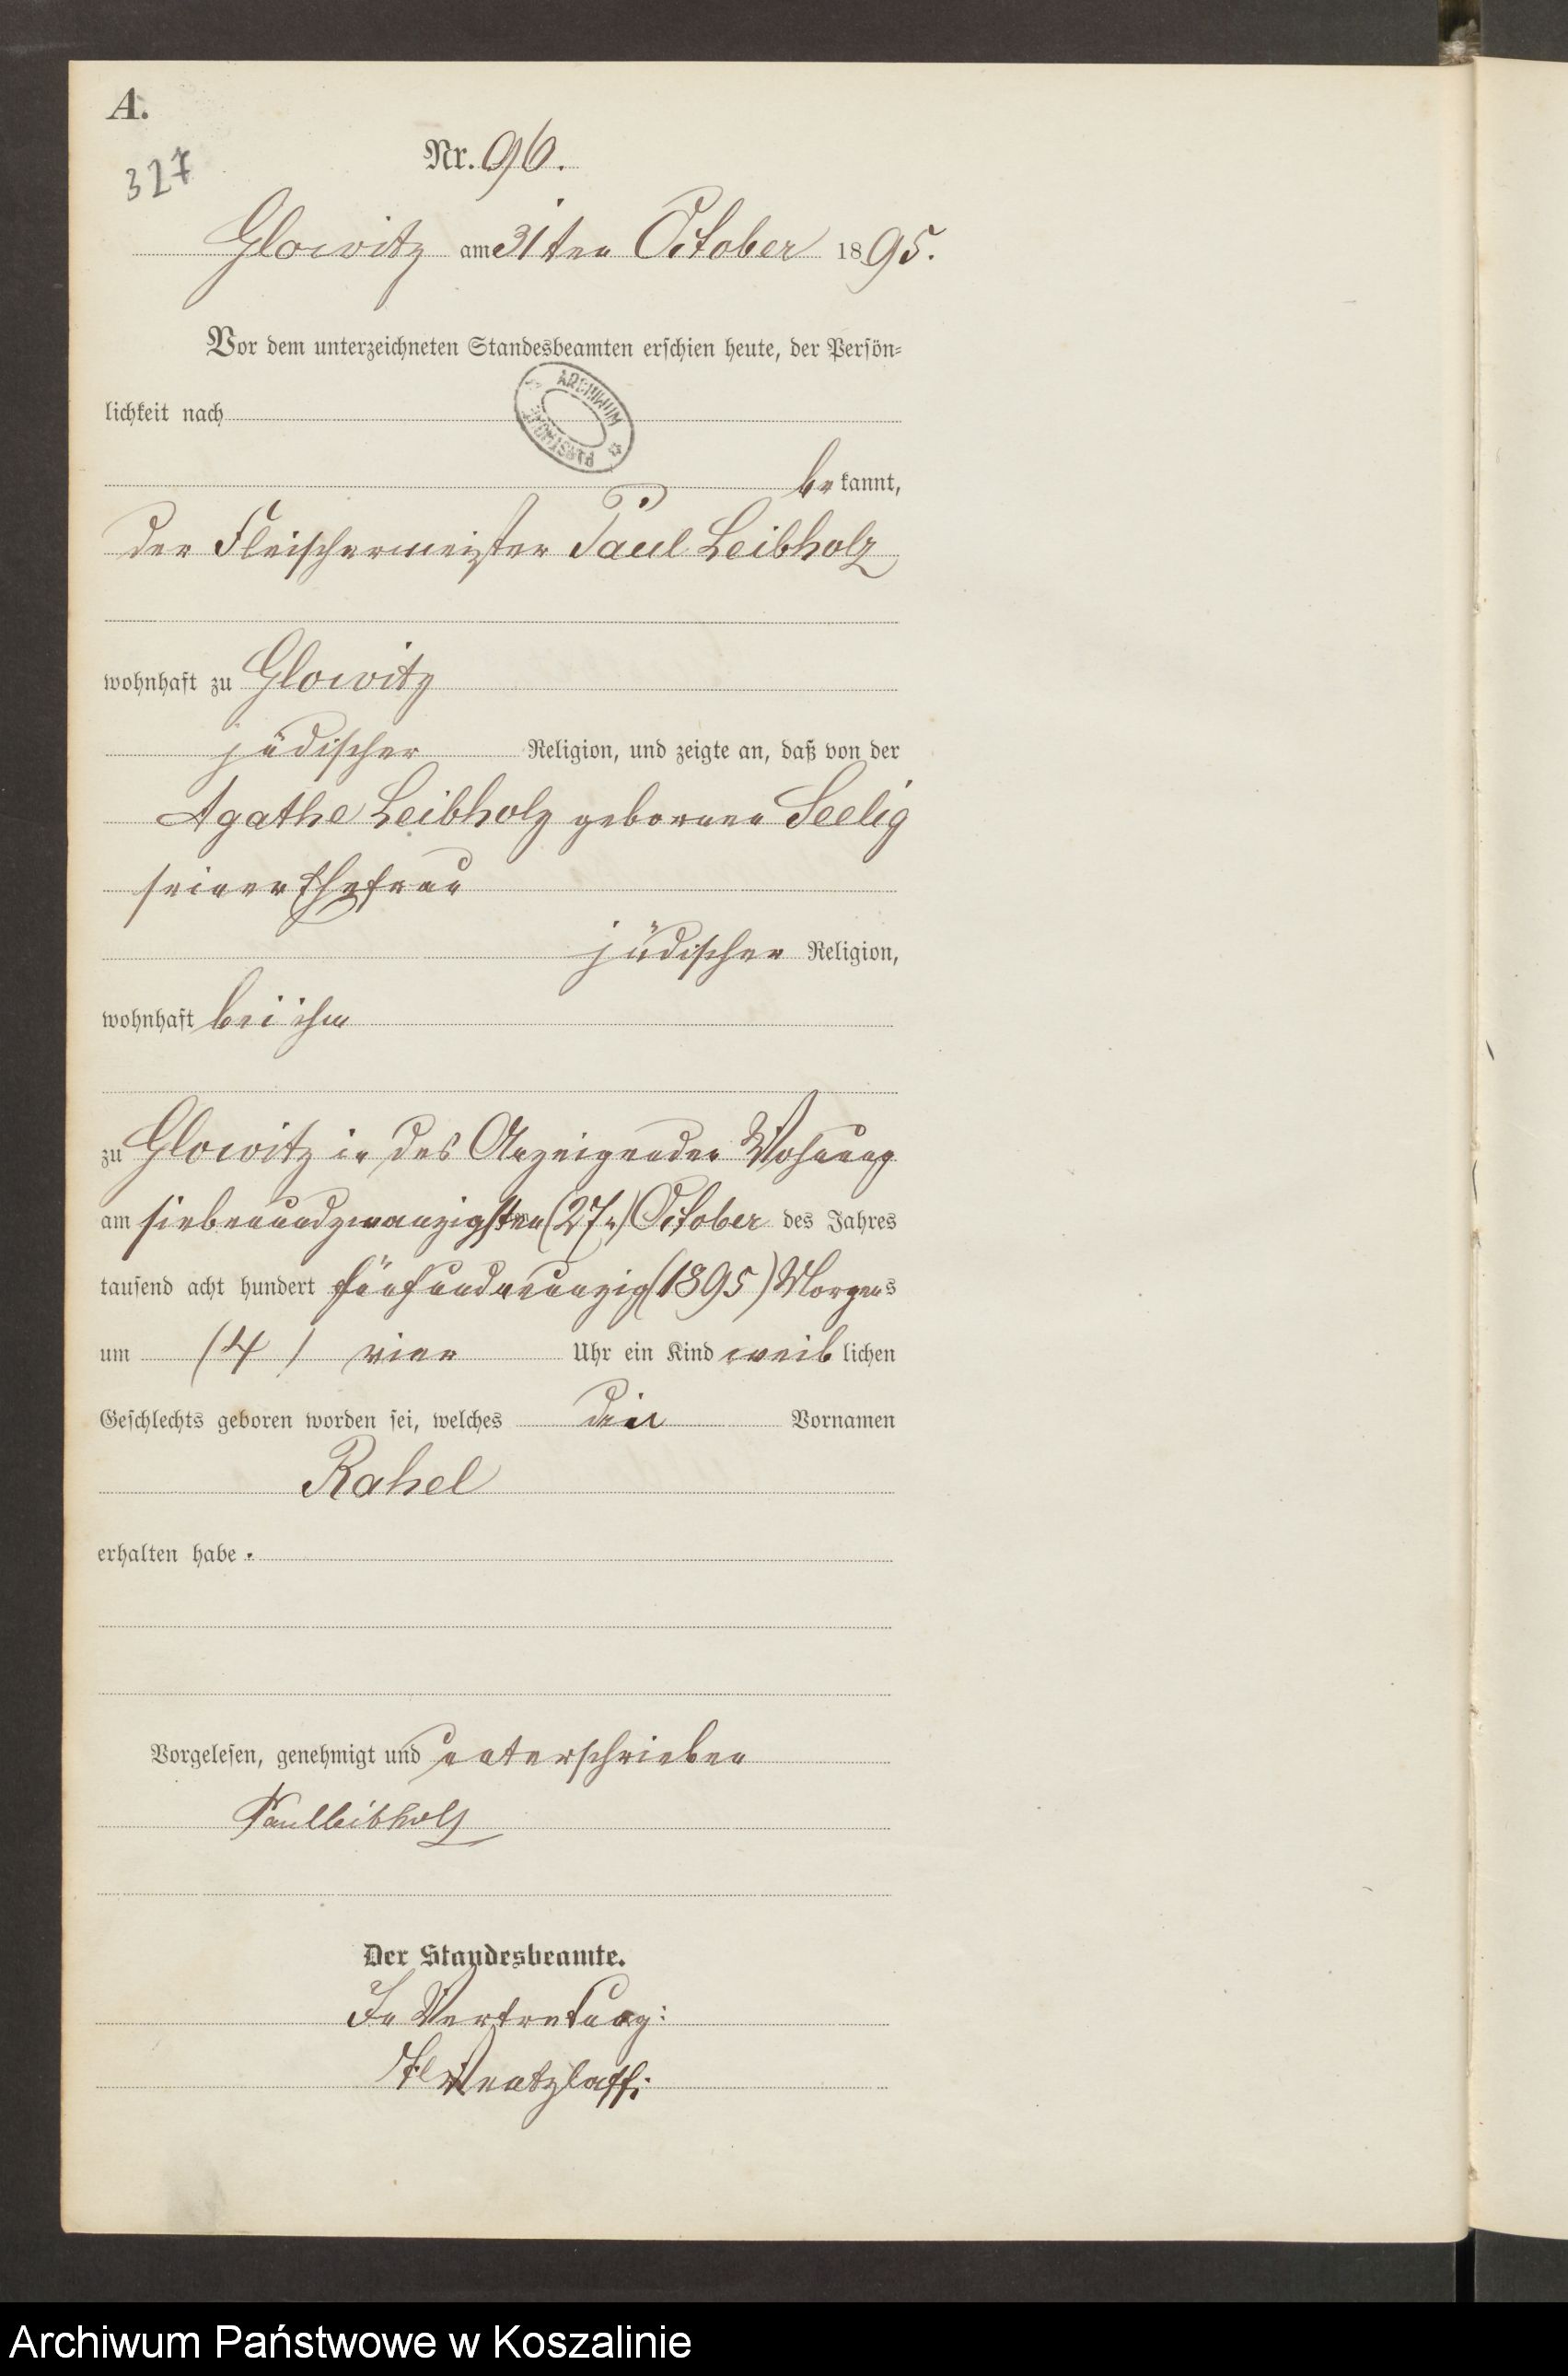 A.
327
Nr. 96.
Glowitz am 31ten October 1895.
Vor dem unterzeichneten Standesbeamten erschien heute, der Persön-
lichkeit nach
ARCHIWUM
bekannt,
der Fleischermeister Paul Leibholz
wohnhaft zu Glowitz
jüdischer Religion, und zeigte an, daß von der
Agathe Leibholz geborene Seelig
seiner Ehefrau
jüdischer Religion,
wohnhaft bei ihm
zu Glowitz in des Anzeigenden Wohnung
am siebenundzwanzigsten (27.) October des Jahres
tausend acht hundert fünfundneunzig (1895) Morgens
um (4) vier Uhr ein Kind weiblichen
Geschlechts geboren worden sei, welches den Vornamen
Rahel
erhalten habe.
Vorgelesen, genehmigt und unterschrieben
Paul Leibholz
Der Standesbeamte.
In Vertretung:
Archiwum Państwowe w Koszalinie